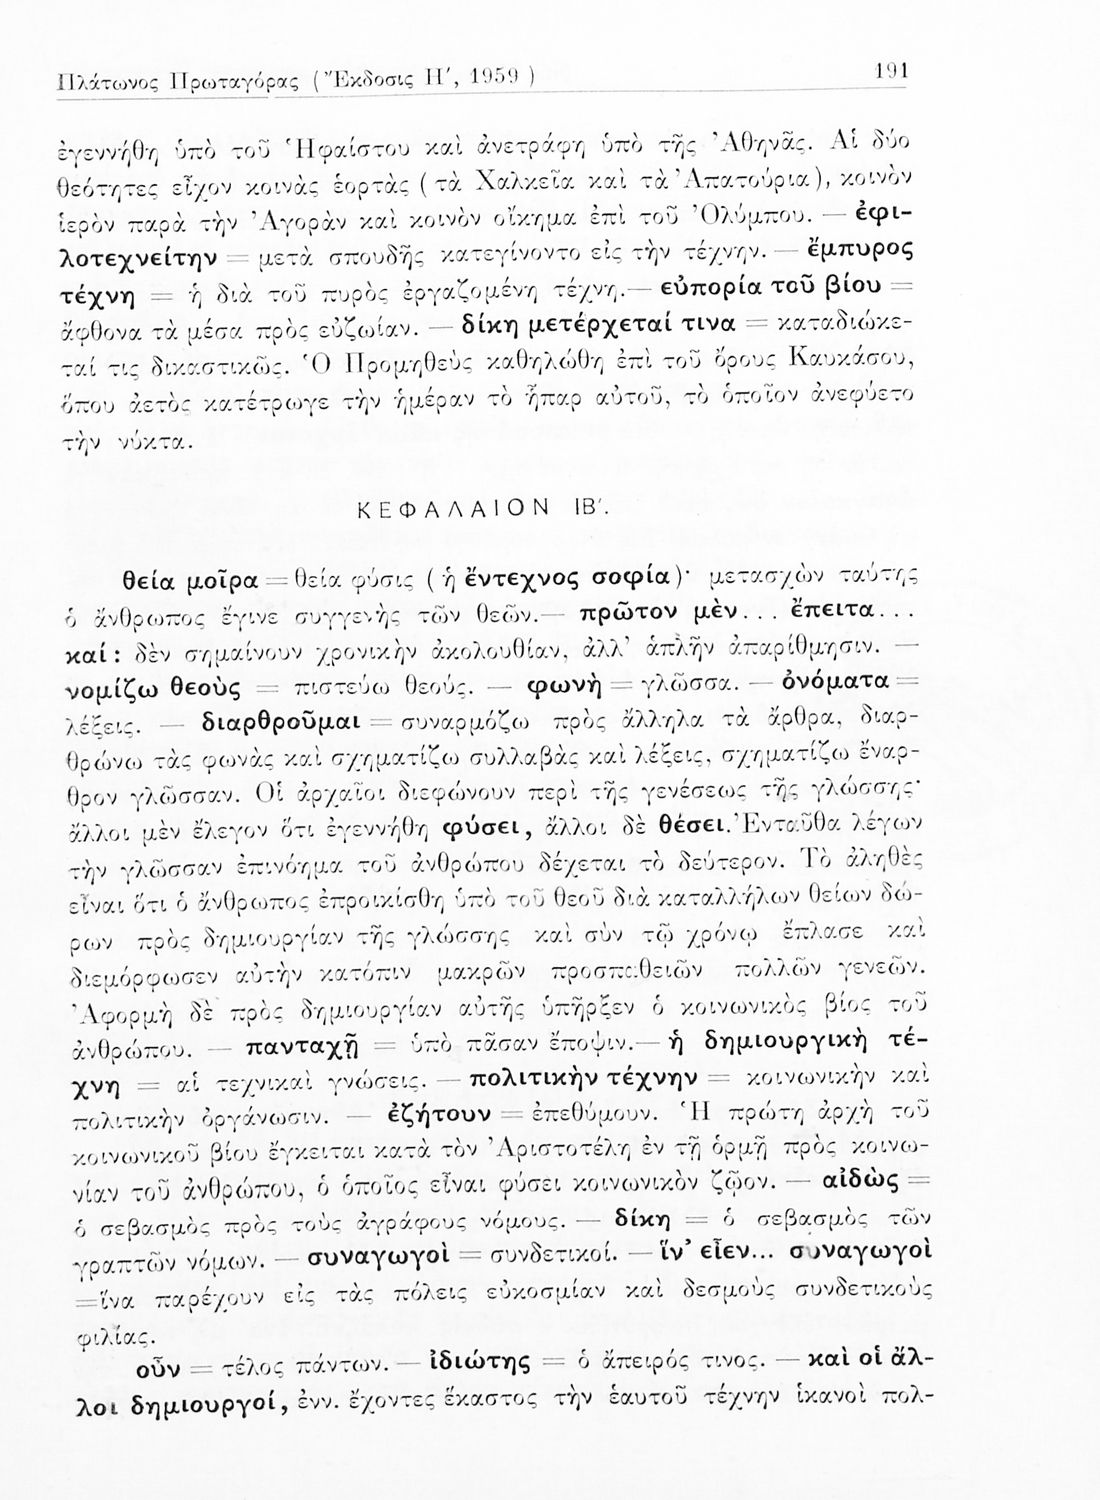 Πλάτωνος Πρωταγόρας (Ἔκδοσις Η′, 1959) 191
ἐγεννήθη ὑπὸ τοῦ Ἡφαίστου καὶ ἀνετράφη ὑπὸ τῆς Ἀθηνᾶς. Αἱ δύο
θεότητες εἶχον κοινὰς ἑορτὰς (τὰ Χαλκεῖα καὶ τὰ Ἀπατούρια), κοινὸν
ἱερὸν παρὰ τὴν Ἀγορὰν καὶ κοινὸν οἴκημα ἐπὶ τοῦ Ὀλύμπου. — ἐφι-
λοτεχνείτην = μετὰ σπουδῆς κατεγίνοντο εἰς τὴν τέχνην. — ἔμπυρος
τέχνη = ἡ διὰ τοῦ πυρὸς ἐργαζομένη τέχνη.— εὐπορία τοῦ βίου =
ἄφθονα τὰ μέσα πρὸς εὐζωίαν. — δίκη μετέρχεταί τινα = καταδιώκε-
ταί τις δικαστικῶς. Ὁ Προμηθεὺς καθηλώθη ἐπὶ τοῦ ὄρους Καυκάσου,
ὅπου ἀετὸς κατέτρωγε τὴν ἡμέραν τὸ ἧπαρ αὐτοῦ, τὸ ὁποῖον ἀνεφύετο
τὴν νύκτα.
ΚΕΦΑΛΑΙΟΝ ΙΒ′.
θεία μοῖρα = θεία φύσις (ἡ ἔντεχνος σοφία)· μετασχὼν ταύτης
ὁ ἄνθρωπος ἔγινε συγγενὴς τῶν θεῶν.— πρῶτον μὲν... ἔπειτα...
καί: δὲν σημαίνουν χρονικὴν ἀκολουθίαν, ἀλλ’ ἁπλῆν ἀπαρίθμησιν. —
νομίζω θεοὺς = πιστεύω θεούς. — φωνὴ = γλῶσσα. — ὀνόματα =
λέξεις. — διαρθροῦμαι = συναρμόζω πρὸς ἄλληλα τὰ ἄρθρα, διαρ-
θρώνω τὰς φωνὰς καὶ σχηματίζω συλλαβὰς καὶ λέξεις, σχηματίζω ἔναρ-
θρον γλῶσσαν. Οἱ ἀρχαῖοι διεφώνουν περὶ τῆς γενέσεως τῆς γλώσσης·
ἄλλοι μὲν ἔλεγον ὅτι ἐγεννήθη φύσει, ἄλλοι δὲ θέσει. Ἐνταῦθα λέγων
τὴν γλῶσσαν ἐπινόημα τοῦ ἀνθρώπου δέχεται τὸ δεύτερον. Τὸ ἀληθὲς
εἶναι ὅτι ὁ ἄνθρωπος ἐπροικίσθη ὑπὸ τοῦ θεοῦ διὰ καταλλήλων θείων δώ-
ρων πρὸς δημιουργίαν τῆς γλώσσης καὶ σὺν τῷ χρόνῳ ἔπλασε καὶ
διεμόρφωσεν αὐτὴν κατόπιν μακρῶν προσπαθειῶν πολλῶν γενεῶν.
Ἀφορμὴ δὲ πρὸς δημιουργίαν αὐτῆς ὑπῆρξεν ὁ κοινωνικὸς βίος τοῦ
ἀνθρώπου. — πανταχῇ = ὑπὸ πᾶσαν ἔποψιν.— ἡ δημιουργικὴ τέ-
χνη = αἱ τεχνικαὶ γνώσεις. — πολιτικὴν τέχνην = κοινωνικὴν καὶ
πολιτικὴν ὀργάνωσιν. — ἐζήτουν = ἐπεθύμουν. Ἡ πρώτη ἀρχὴ τοῦ
κοινωνικοῦ βίου ἔγκειται κατὰ τὸν Ἀριστοτέλη ἐν τῇ ὁρμῇ πρὸς κοινω-
νίαν τοῦ ἀνθρώπου, ὁ ὁποῖος εἶναι φύσει κοινωνικὸν ζῷον. — αἰδὼς =
ὁ σεβασμὸς πρὸς τοὺς ἀγράφους νόμους. — δίκη = ὁ σεβασμὸς τῶν
γραπτῶν νόμων. — συναγωγοὶ = συνδετικοί. — ἵν’ εἶεν... συναγωγοὶ
=ἵνα παρέχουν εἰς τὰς πόλεις εὐκοσμίαν καὶ δεσμοὺς συνδετικοὺς
φιλίας.
οὖν = τέλος πάντων. — ἰδιώτης = ὁ ἄπειρός τινος. — καὶ οἱ ἄλ-
λοι δημιουργοί, ἐνν. ἔχοντες ἕκαστος τὴν ἑαυτοῦ τέχνην ἱκανοὶ πολ-